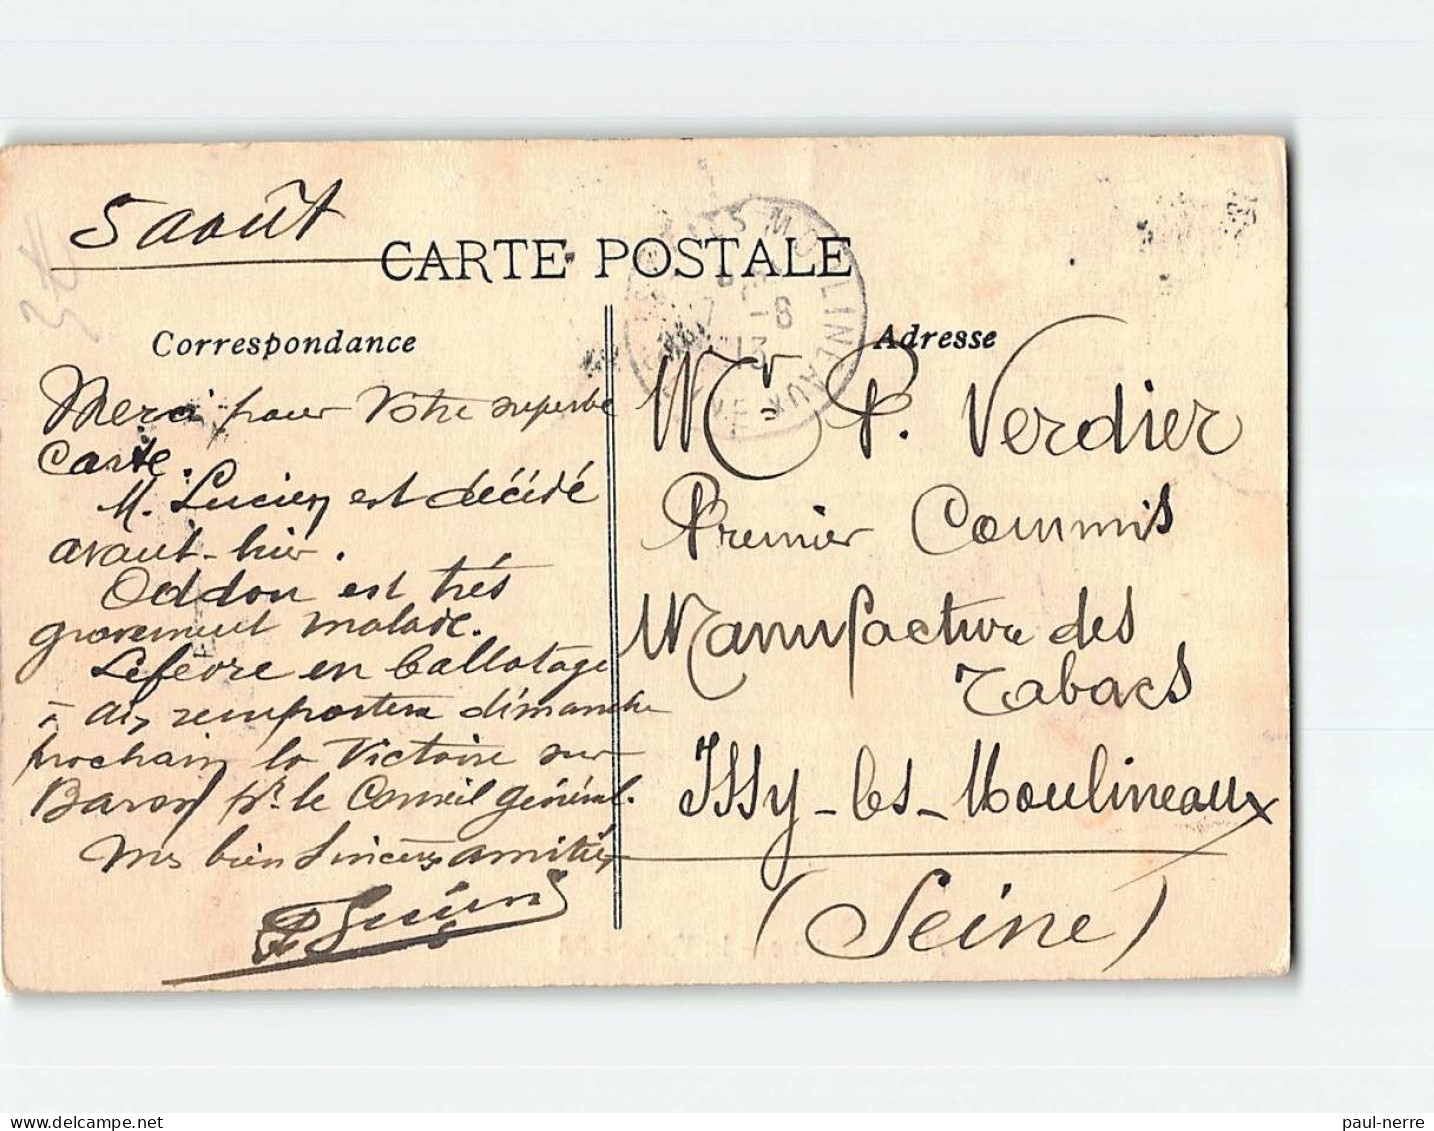 5 août
CARTE POSTALE
Correspondance
Adresse
Merci pour Votre superbe
Carte.
M. Lucien est décédé
avant-hier.
Oddon est très
gravement malade.
Lefèvre en ballotage
à Aix remportera dimanche
prochain la Victoire sur
Baron pr. le Conseil général.
Mes bien Sincères amitiés
Mr P. Verdier
Premier Commis
Manufacture des
Tabacs
Issy-les-Moulineaux
(Seine)
MOULINEAUX
7 -8
13
3€
paul-nerre